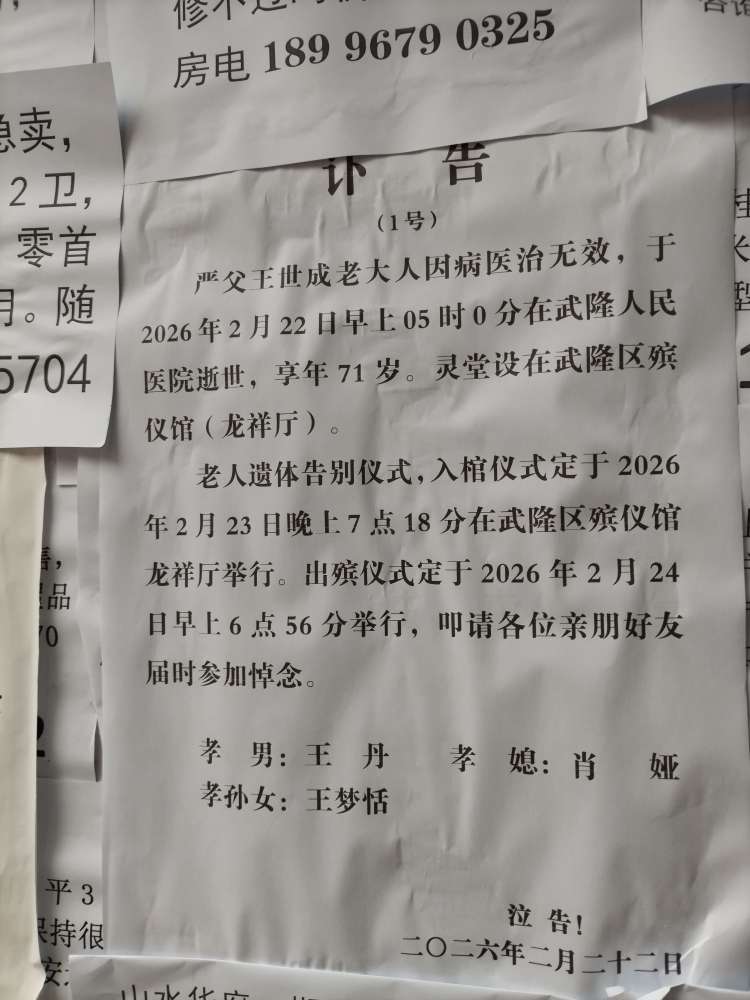 房电 18996790325
急卖，
2卫，
零首
月。随
5704
讣 告
（1号）
严父王世成老大人因病医治无效，于
2026年2月22日早上05时0分在武隆人民
医院逝世，享年71岁。灵堂设在武隆区殡
仪馆（龙祥厅）。
老人遗体告别仪式，入棺仪式定于2026
年2月23日晚上7点18分在武隆区殡仪馆
龙祥厅举行。出殡仪式定于2026年2月24
日早上6点56分举行，叩请各位亲朋好友
届时参加悼念。
孝 男：王 丹 孝 媳：肖 娅
孝孙女：王梦恬
泣 告！
二〇二六年二月二十二日
品
70
2
平3
保持很
安